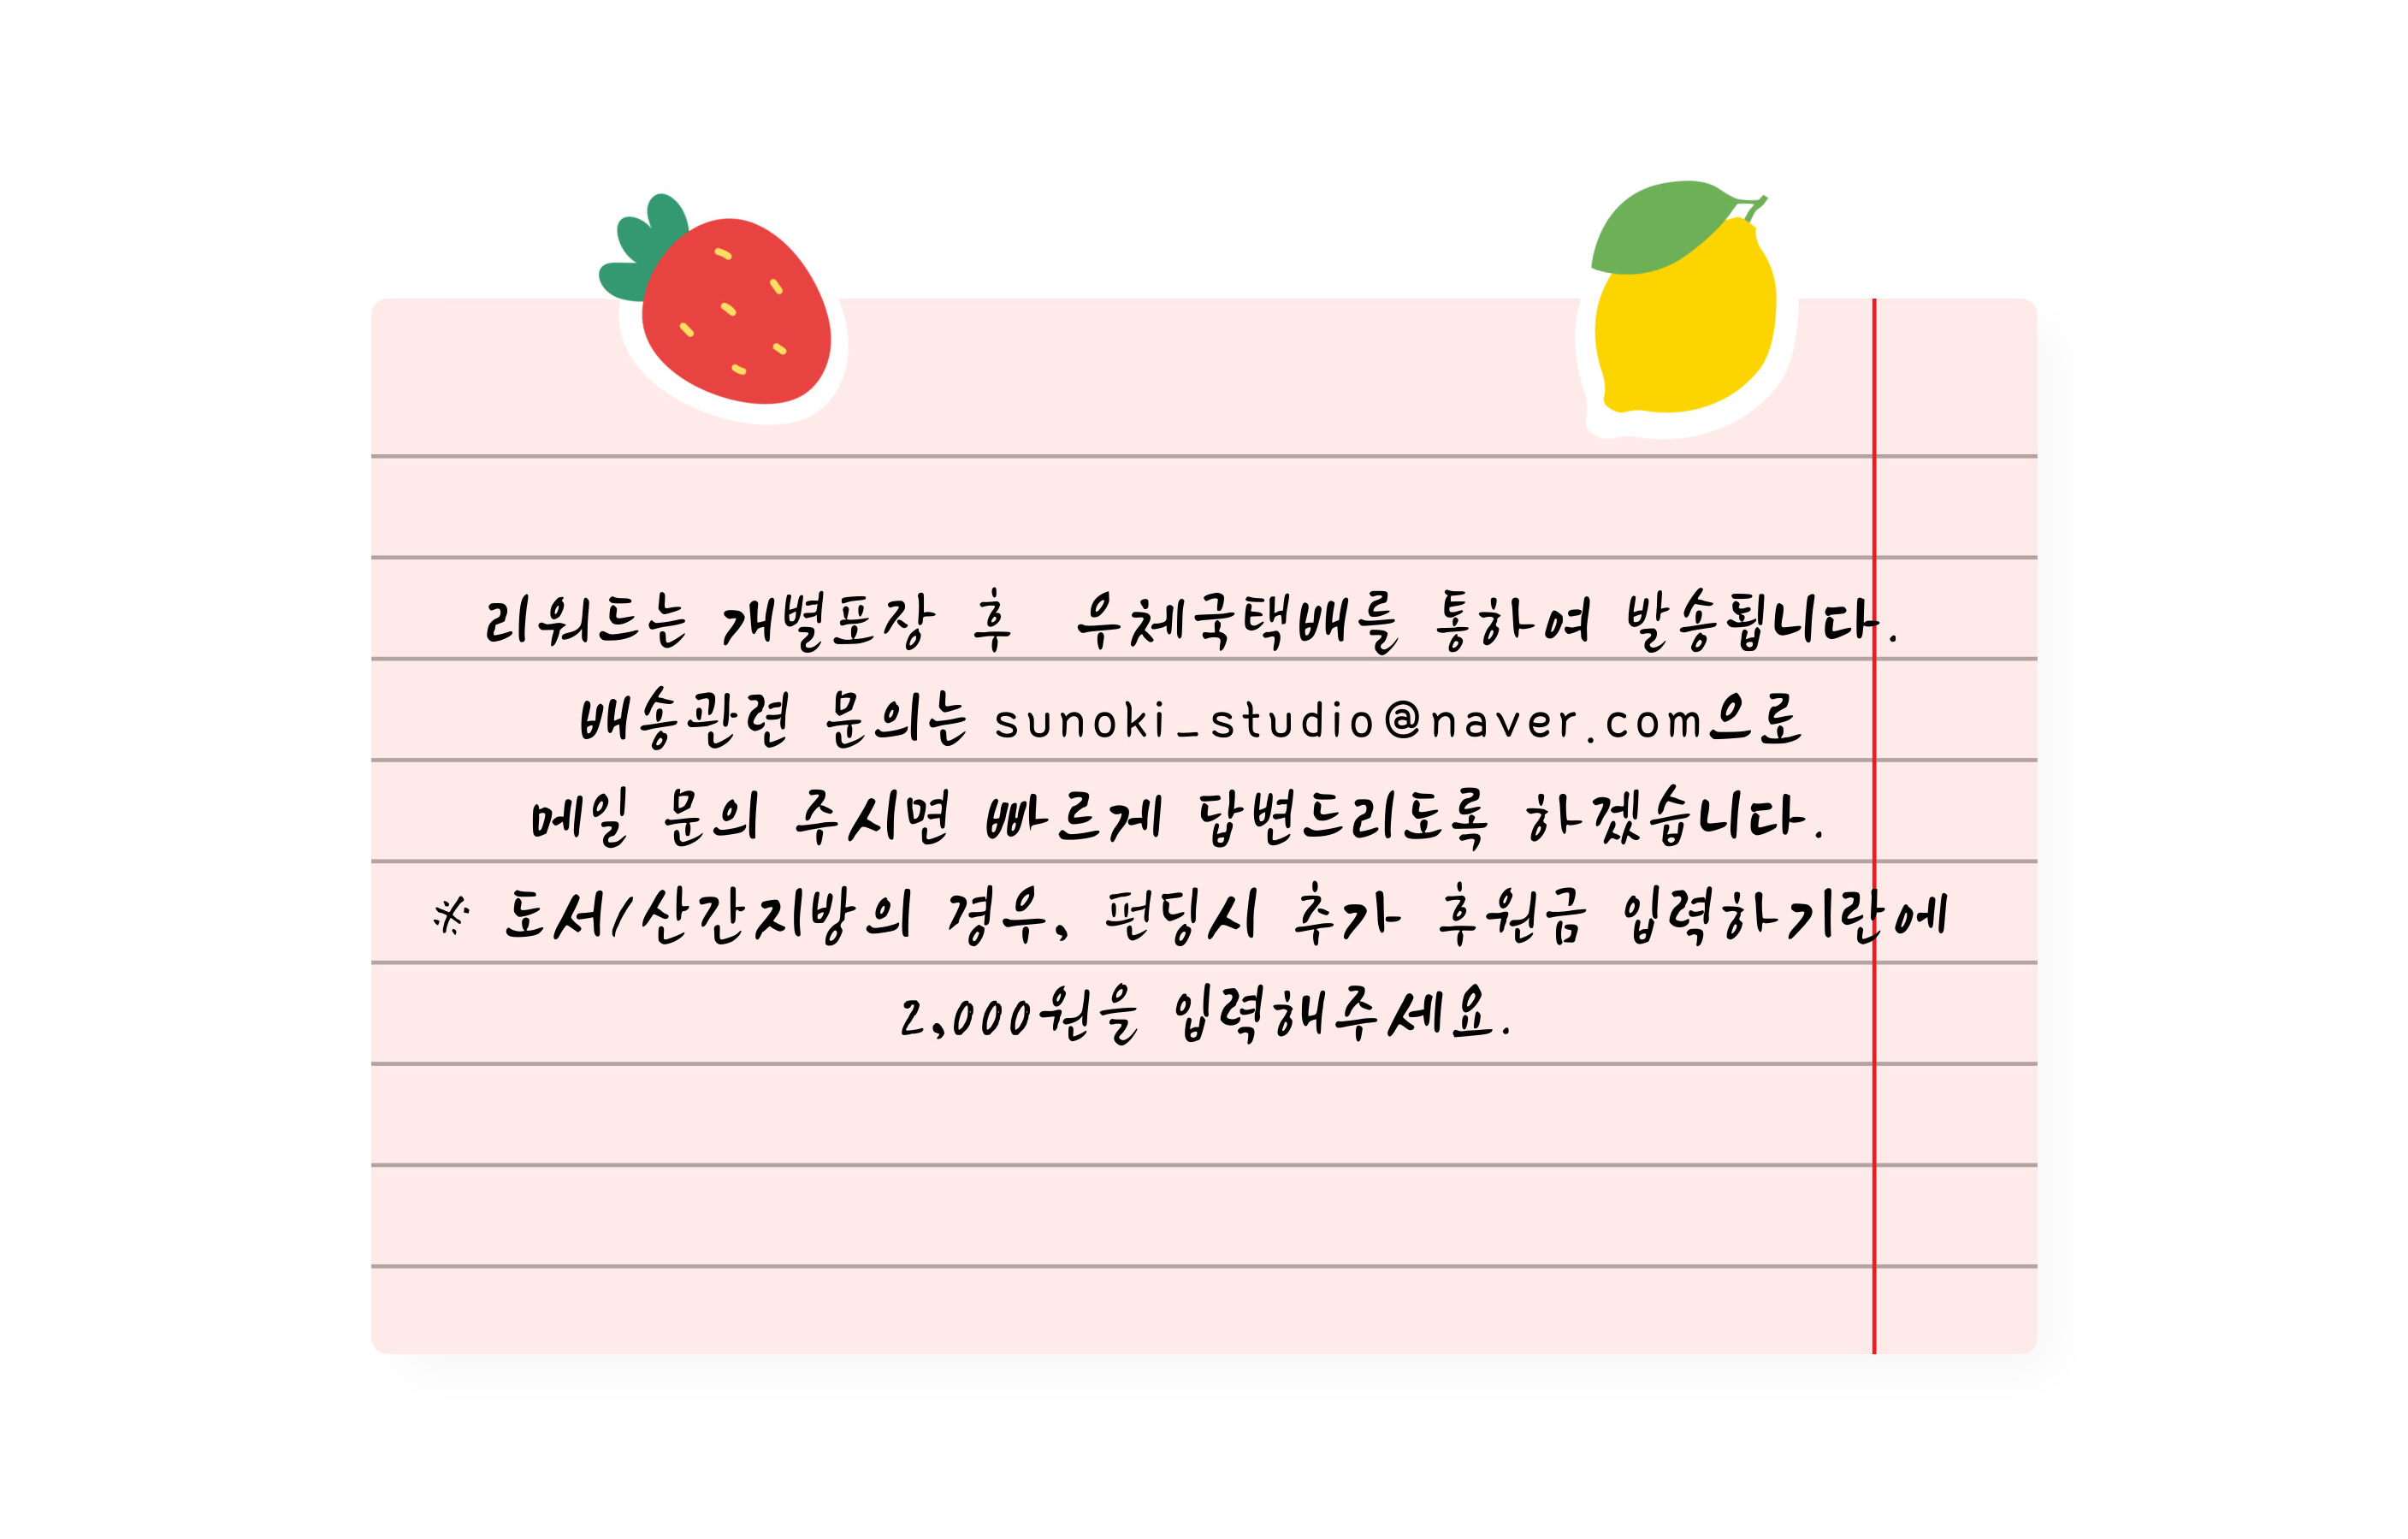 리워드는 개별포장 후 우체국택배를 통하여 발송됩니다.
배송관련 문의는 sunoki_studio@naver.com으로
메일 문의 주시면 빠르게 답변드리도록 하겠습니다.
※ 도서/산간지방의 경우, 펀딩시 추가 후원금 입력하기란에
2,000원을 입력해주세요.